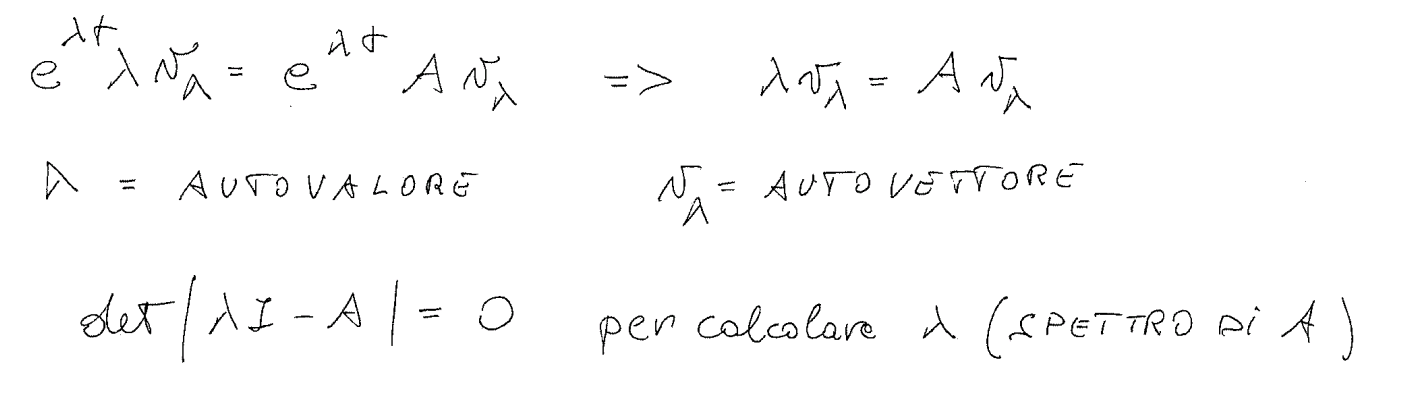 e^{λt} λ v_λ = e^{λt} A v_λ => λ v_λ = A v_λ
λ = AUTOVALORE v_λ = AUTOVETTORE
det|λI - A| = 0 per calcolare λ (SPETTRO DI A)